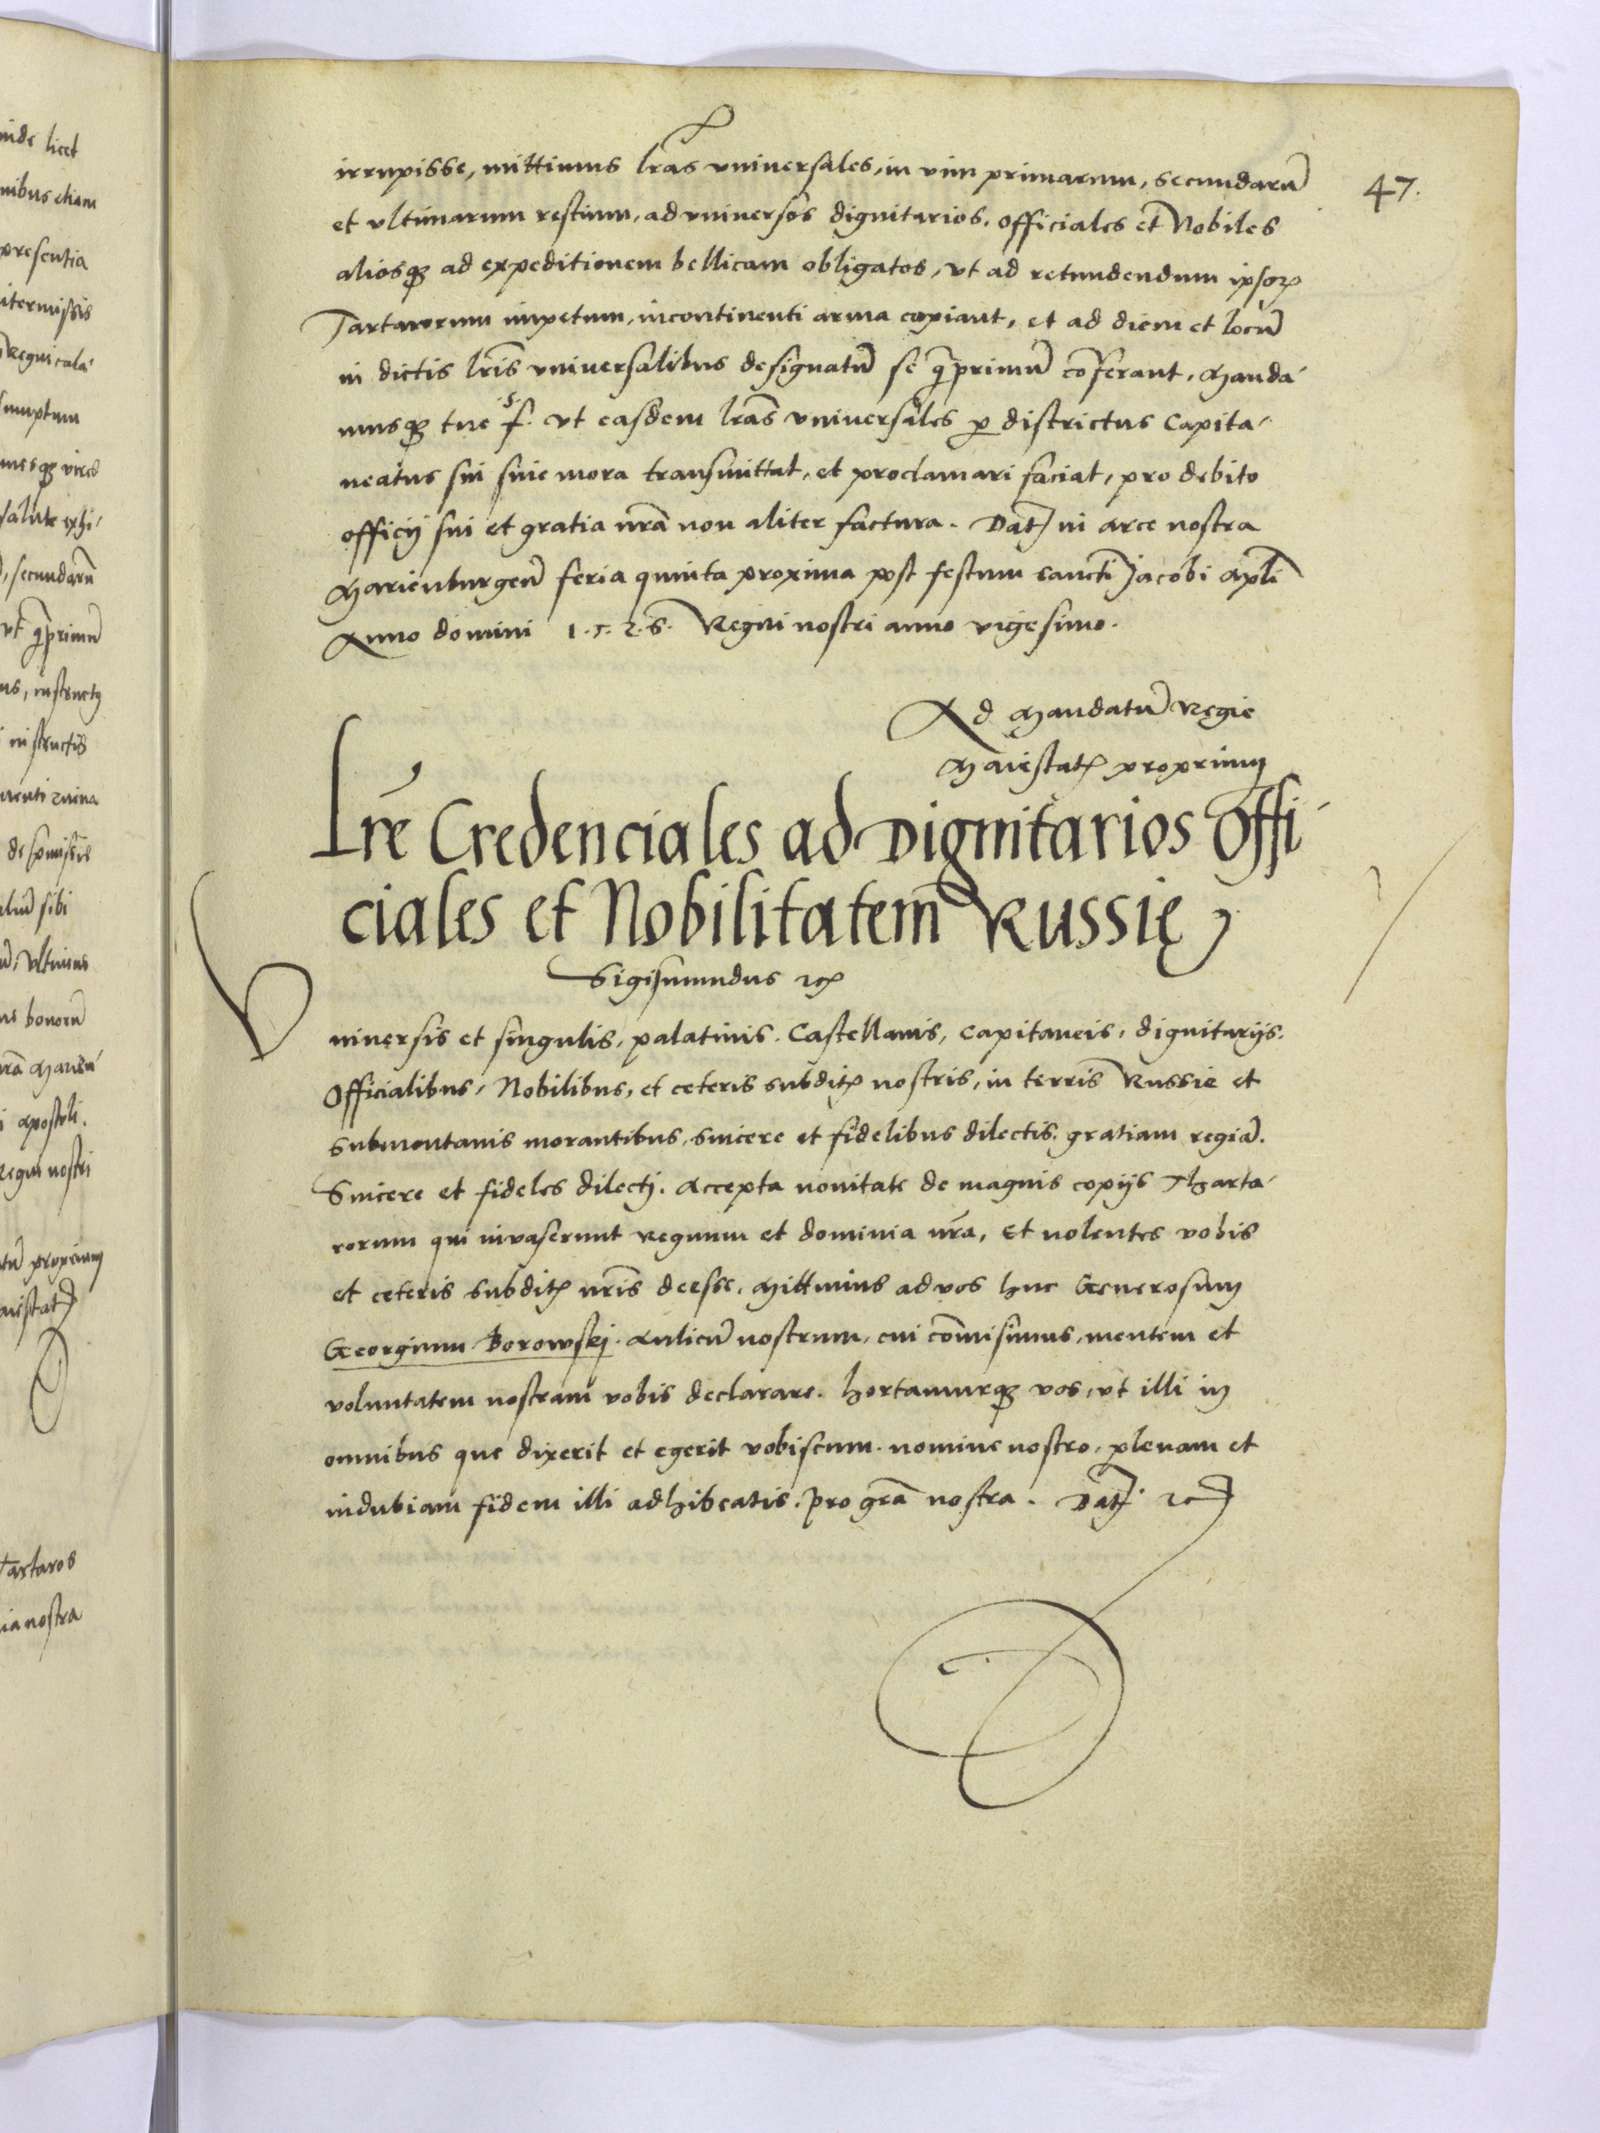 irrupisse, mittimus lr̃as vniuersales, in vim primarum, secundarũ
et vltimarum restium, ad vniuersos dignitarios, officiales et Nobiles
aliosqꝫ ad expeditionem bellicam obligatos, vt ad retundendum ipsoꝝ
Tartarorum impetum, incontinenti arma capiant, et ad diem et locũ
in dictis lr̃is vniuersalibus designatũ se q̃primũ cõferant, Manda-
musqꝫ tue s. f. vt easdem lr̃as vniuersales ꝑ districtus Capita-
neatus sui sine mora transmittat, et proclamari faciat, pro debito
officij sui et gratia nr̃a non aliter factura. Dat̃ in arce nostra
Marienburgeñ feria quinta proxima post festum sancti Jacobi Apl̃i
Anno domini 1.5.2.6. Regni nostri anno vigesimo.
47.
Ad Mandatũ Regie
Maiestatꝭ proprium
Lrẽ Credenciales ad Dignitarios Offi-
ciales et Nobilitatem Russię
Sigismundus ꝛcꝭ
Vniuersis et singulis, palatinis, Castellanis, Capitaneis, dignitarijs,
Officialibus, Nobilibus, et ceteris subditꝭ nostris, in terris Russie et
submontanis morantibus, sincere et fidelibus dilectis, gratiam regiã.
Sincere et fideles dilectj. Accepta nouitate de magnis copijs Tharta-
rorum qui inuaserunt Regnum et dominia nr̃a, Et nolentes vobis
et ceteris subditꝭ nr̃is deesse, Mittimus ad vos huc Generosum
Georgium Borowskj. Aulicũ nostrum, cui cõmisimus, mentem et
voluntatem nostram vobis declarare. hortamurqꝫ vos, vt illi in
omnibus que dixerit et egerit vobiscum, nomine nostro, plenam et
indubiam fidem illi adhibeatis, pro gr̃a nostra. Dat̃. ꝛc
inde licet
nibus etiam
presentia
itermissis
Regni cala-
sumptum
mesqꝫ vires
salute exhi-
secundarũ
vt q̃primũ
instructis
sibi
vltimus
bonorũ
apostoli.
regni nostri
proprium
Tartaros
ia nostra